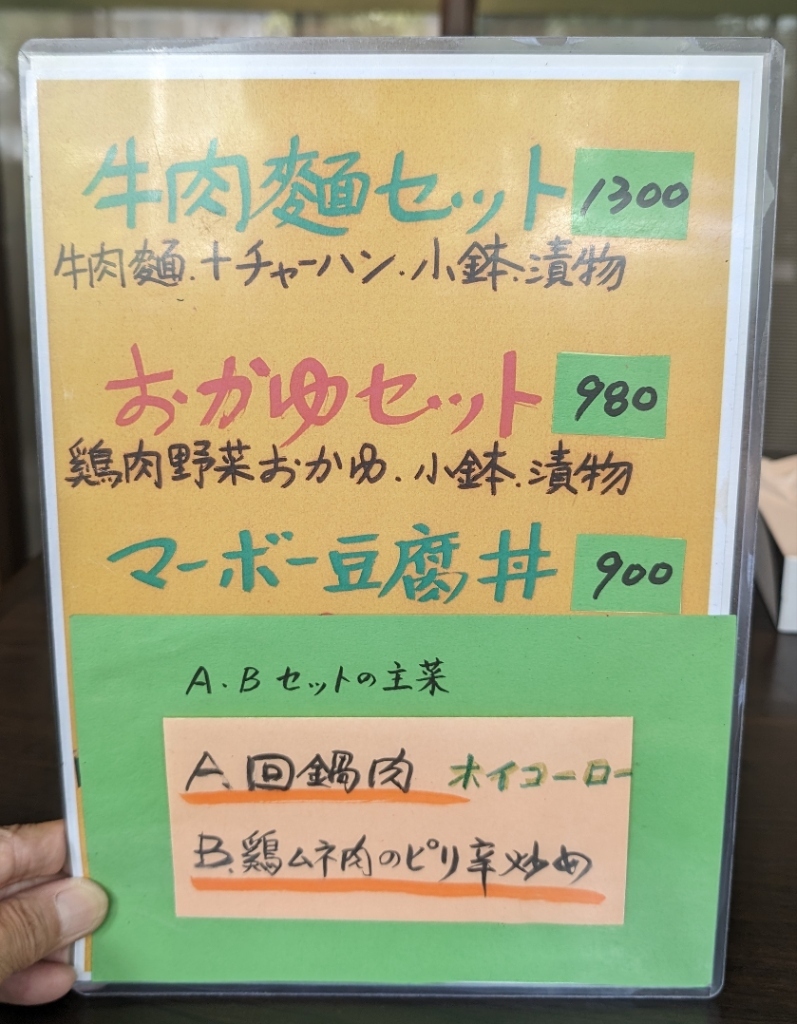 牛肉麵セット 1300
牛肉麵.+チャーハン.小鉢.漬物
おかゆセット 980
鶏肉野菜おかゆ.小鉢.漬物
マーボー豆腐丼 900
A.Bセットの主菜
A.回鍋肉 ホイコーロー
B.鶏ムネ肉のピリ辛炒め